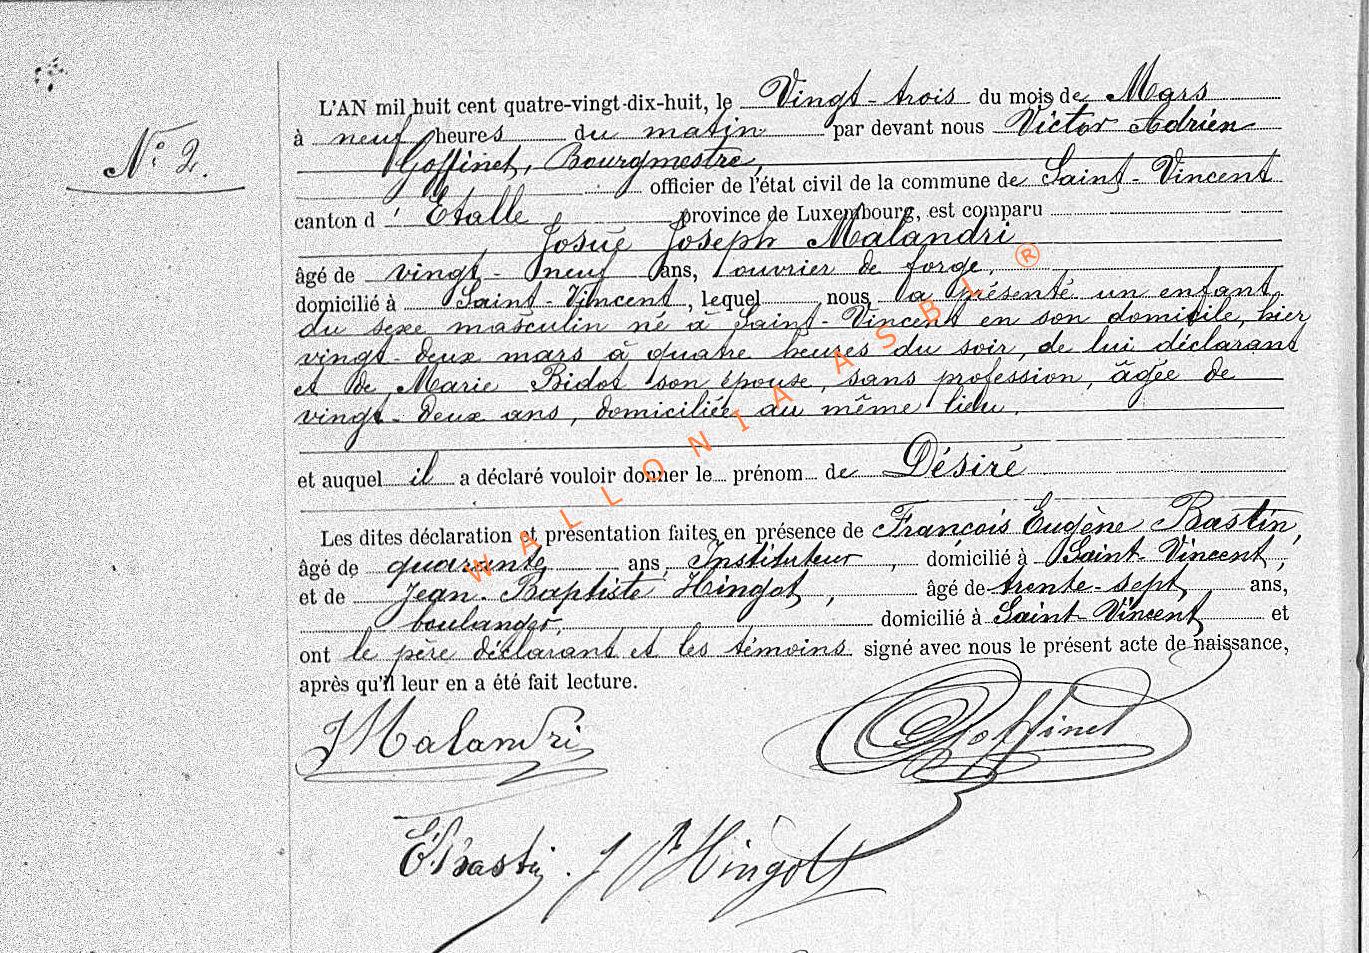 N° 2.
L'AN mil huit cent quatre-vingt-dix-huit, le Vingt-trois du mois de Mars
à neuf heures du matin par devant nous Victor Adrien
Goffinet, Bourgmestre,
officier de l'état civil de la commune de Saint-Vincent
canton d' Etalle province de Luxembourg, est comparu
Josué Joseph Malandri
âgé de vingt-neuf ans, ouvrier de forge,
domicilié à Saint-Vincent, lequel nous a présenté un enfant
du sexe masculin né à Saint-Vincent en son domicile, hier
vingt-deux mars à quatre heures du soir, de lui déclarant
et de Marie Bidot son épouse, sans profession, âgée de
vingt-deux ans, domiciliée au même lieu.
et auquel il a déclaré vouloir donner le prénom de Désiré
Les dites déclaration et présentation faites en présence de François Eugène Bastin,
âgé de quarante ans, Instituteur, domicilié à Saint-Vincent,
et de Jean-Baptiste Hingot, âgé de trente-sept ans,
boulanger, domicilié à Saint-Vincent et
ont le père déclarant et les témoins signé avec nous le présent acte de naissance,
après qu'il leur en a été fait lecture.
JMalandri Goffinet
E. Bastin. J Bt Hingot
WALLONIA ASBL ®